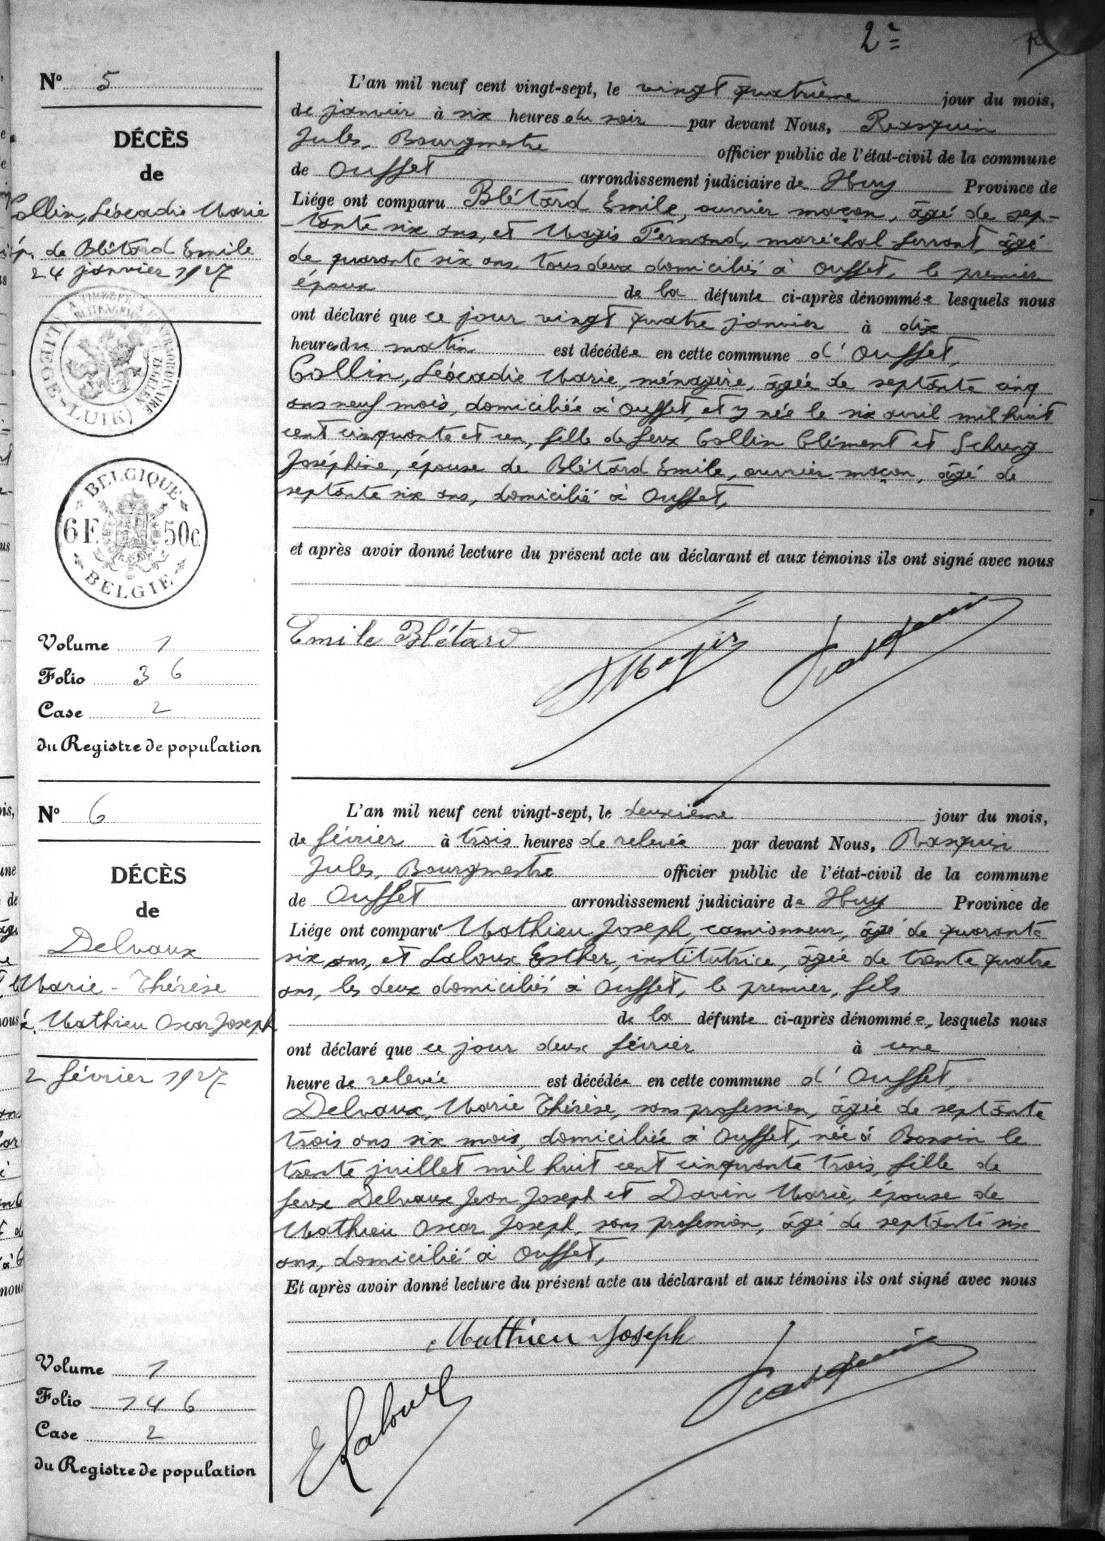 2e
N° 5
DÉCÈS
de
Collin, Léocadie Marie
ép. de Blétard Emile
24 janvier 1927
LIEGE-LUIK
BELGIQUE
6F. 50c.
BELGIE
Volume 1
Folio 36
Case 2
du Registre de population
L'an mil neuf cent vingt-sept, le vingt quatrième jour du mois,
de janvier à six heures du soir par devant Nous, Rasquin
Jules, Bourgmestre officier public de l'état-civil de la commune
de Ouffet arrondissement judiciaire de Huy Province de
Liége ont comparu Blétard Emile, ouvrier maçon, âgé de sep-
tante six ans, et Magis Fernand, maréchal ferrant, âgé
de quarante six ans, tous deux domiciliés à Ouffet, le premier
époux de la défunte ci-après dénommée lesquels nous
ont déclaré que ce jour vingt quatre janvier à dix
heures du matin est décédée en cette commune d'Ouffet,
Collin, Léocadie Marie, ménagère, âgée de septante cinq
ans neuf mois, domiciliée à Ouffet, et y née le six avril mil huit
cent cinquante et un, fille de feux Collin Clément et
Joséphine, épouse de Blétard Emile, ouvrier maçon, âgé de
septante six ans, domicilié à Ouffet,
et après avoir donné lecture du présent acte au déclarant et aux témoins ils ont signé avec nous
Emile Blétard F Magis Rasquin
N° 6
DÉCÈS
de
Delvaux
Marie-Thérèse
é. Mathieu Oscar Joseph
2 février 1927
Volume 1
Folio 146
Case 2
du Registre de population
L'an mil neuf cent vingt-sept, le deuxième jour du mois,
de février à trois heures de relevée par devant Nous, Rasquin
Jules, Bourgmestre officier public de l'état-civil de la commune
de Ouffet arrondissement judiciaire de Huy Province de
Liége ont comparu Mathieu Joseph, camionneur, âgé de quarante
six ans, et Laloux Esther, institutrice, âgée de trente quatre
ans, les deux domiciliés à Ouffet, le premier, fils
de la défunte ci-après dénommée, lesquels nous
ont déclaré que ce jour deux février à une
heure de relevée est décédée en cette commune d'Ouffet,
Delvaux, Marie Thérèse, sans profession, âgée de septante
trois ans six mois, domiciliée à Ouffet, née à Bonsin le
trente juillet mil huit cent cinquante trois, fille de
feux Delvaux Jean Joseph et Davin Marie, épouse de
Mathieu Oscar Joseph, sans profession, âgé de septante six
ans, domicilié à Ouffet,
Et après avoir donné lecture du présent acte au déclarant et aux témoins ils ont signé avec nous
Mathieu Joseph
E Laloux Rasquin